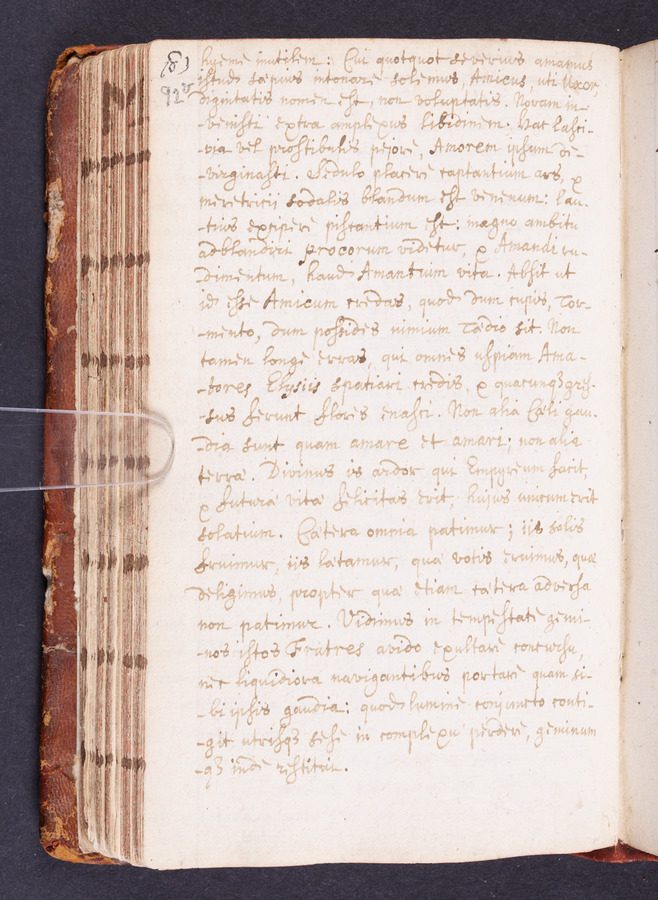 (8)
92v
hyeme inutilem: Cui quotquot severius amamus
istud sæpius intonare solemus, Amicus, uti Uxor,
dignitatis nomen est, non voluptatis. Novam in-
-venisti extra amplexus libidinem. Hac lasci-
-via vel prostibulis pejore, Amorem ipsum de-
-virginasti. Sedulo placere captantium ars, &
meretricii sodalis blandum est venenum: lau-
-tius excipere piscantium est: magno ambitu
adblandiri procorum videtur, & Amandi ru-
-dimentum, haud Amantium vita. Absit ut
id esse Amicum credas, quod dum cupis, Tor-
-mento, dum possides nimium Tædio sit. Non
tamen longe erras, qui omnes uspiam Ama-
-tores Elysiis spatiari credis, & quacunqꝫ gres-
-sus ferunt flores enasci. Non alia Cæli gau-
-dia sunt quam amare et amari; non alia
terræ. Divinus is ardor qui Empyreum facit,
& futura vita felicitas erit, hujus unicum erit
solatium. Cætera omnia patimur; iis solis
fruimur, iis lætamur, quæ votis eruimus, quæ
deligimus, propter quæ etiam cætera adversa
non patimur. Vidimus in tempestate gemi-
-nos istos Fratres avido exultare concursu,
nec liquidiora navigantibus portare quam si-
-bi ipsis gaudia: quod lumine conjuncto conti-
-git utrisqꝫ sese in complexu perdere, geminum
-qꝫ inde restitui.